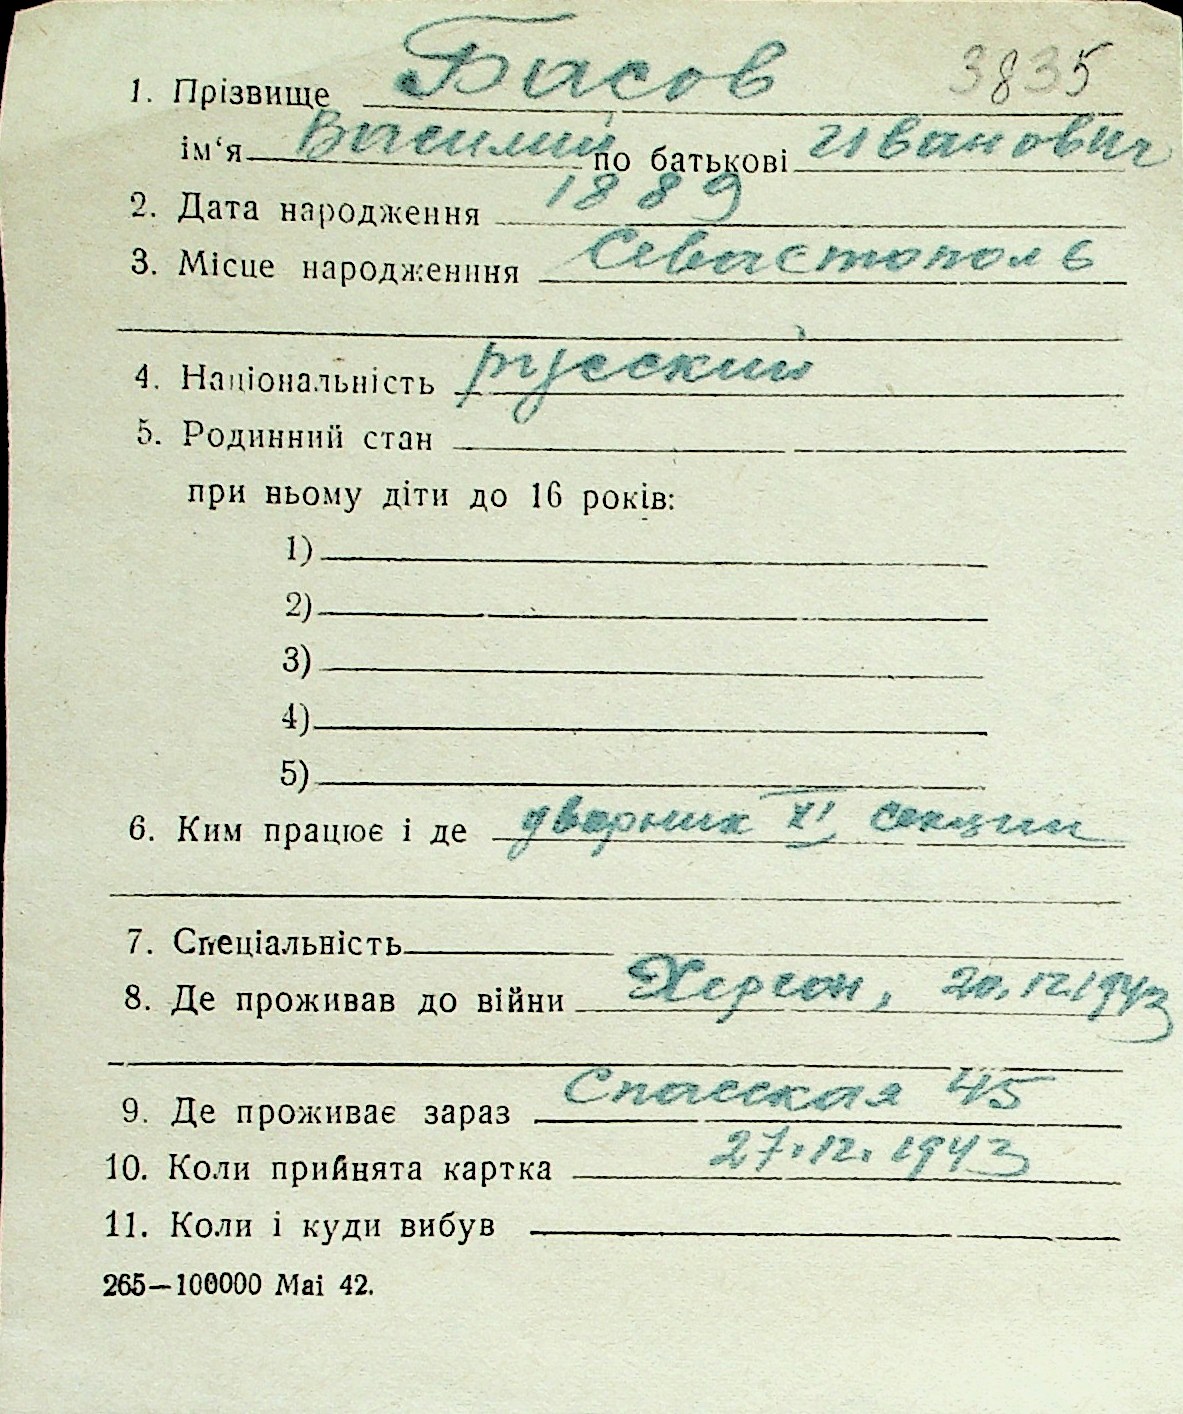 3835
1. Прізвище Басов
ім‘я Василий по батькові Иванович
2. Дата народження 1889
3. Місце народженння Севастополь
4. Національність русский
5. Родинний стан
при ньому діти до 16 років:
1)
2)
3)
4)
5)
6. Ким працює і де дворник XI секции
7. Спеціальність
8. Де проживав до війни Херсон, 20.12.1943
9. Де проживає зараз Спасская 45
10. Коли прийнята картка 27.12.1943
11. Коли і куди вибув
265—100000 Mai 42.